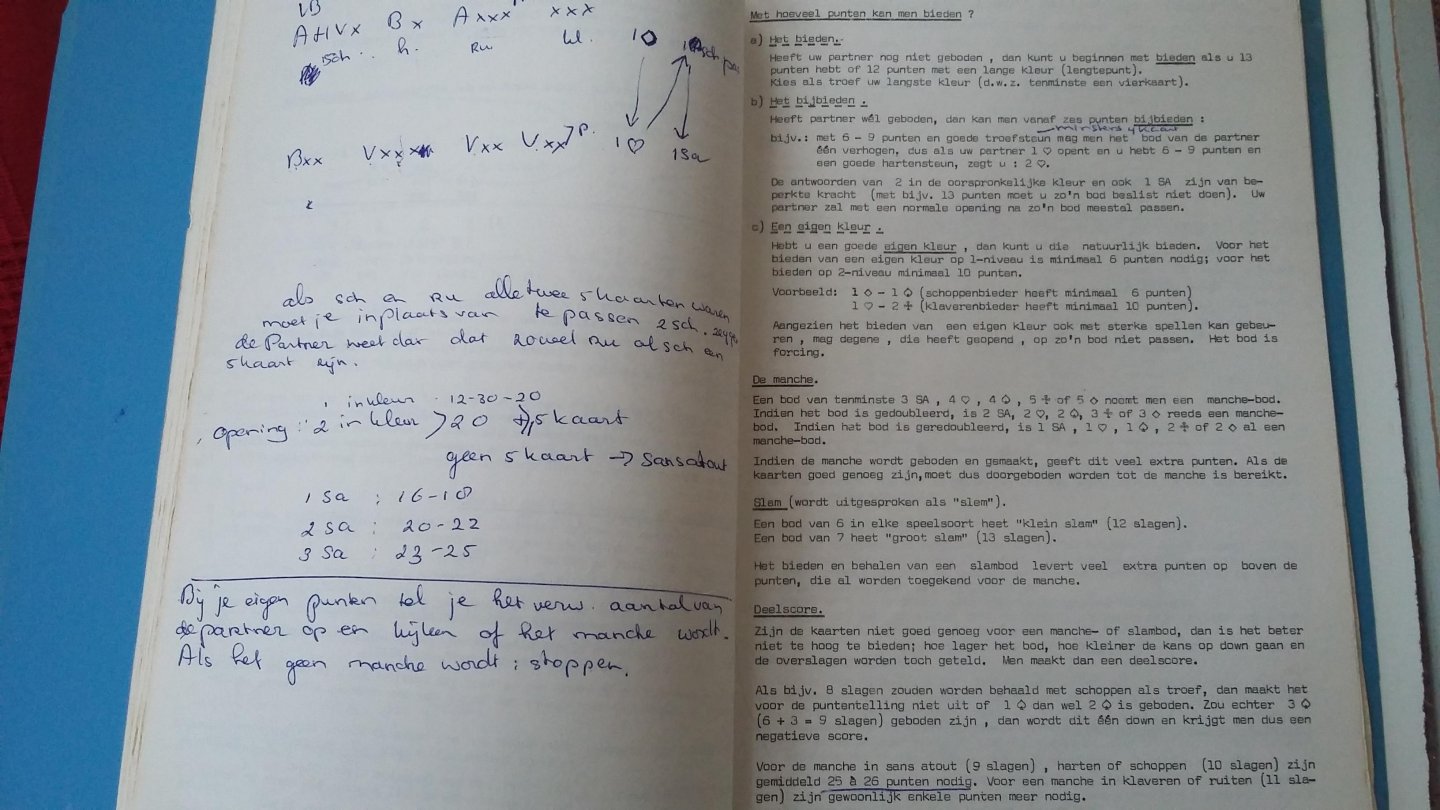 VB
AHVx Bx Axxx xxx
sch. h. Ru kl. 1◇ pas
Bxx Vxx Vxx Vxx 7p. 1♡ 1Sa
als sch en Ru alletwee 5 kaarten waren
moet je inplaats van te passen 2 sch. zeggen
de Partner weet dan dat zowel Ru als sch een
5 kaart zijn.
in kleur 12-30-20
opening: 2 in kleur > 20 5 kaart
geen 5 kaart → Sansatout
1 Sa : 16-18
2 Sa : 20-22
3 Sa : 23-25
Bij je eigen punten tel je het verw. aantal van
de partner op en kijken of het manche wordt.
Als het geen manche wordt : stoppen.
Met hoeveel punten kan men bieden ?
a) Het bieden.
Heeft uw partner nog niet geboden , dan kunt u beginnen met bieden als u 13
punten hebt of 12 punten met een lange kleur (lengtepunt).
Kies als troef uw langste kleur (d.w.z. tenminste een vierkaart).
b) Het bijbieden .
Heeft partner wél geboden, dan kan men vanaf zes punten bijbieden :
minstens 4 kaart
bijv.: met 6 - 9 punten en goede troefsteun mag men het bod van de partner
één verhogen, dus als uw partner 1 ♡ opent en u hebt 6 - 9 punten en
een goede hartensteun, zegt u : 2 ♡.
De antwoorden van 2 in de oorspronkelijke kleur en ook 1 SA zijn van be-
perkte kracht (met bijv. 13 punten moet u zo'n bod beslist niet doen). Uw
partner zal met een normale opening na zo'n bod meestal passen.
c) Een eigen kleur .
Hebt u een goede eigen kleur , dan kunt u die natuurlijk bieden. Voor het
bieden van een eigen kleur op 1-niveau is minimaal 6 punten nodig; voor het
bieden op 2-niveau minimaal 10 punten.
Voorbeeld: 1 ◇ - 1 ♤ (schoppenbieder heeft minimaal 6 punten)
1 ♡ - 2 ♧ (klaverenbieder heeft minimaal 10 punten).
Aangezien het bieden van een eigen kleur ook met sterke spellen kan gebeu-
ren , mag degene , die heeft geopend , op zo'n bod niet passen. Het bod is
forcing.
De manche.
Een bod van tenminste 3 SA , 4 ♡ , 4 ♤ , 5 ♧ of 5 ◇ noemt men een manche-bod.
Indien het bod is gedoubleerd, is 2 SA, 2 ♡, 2 ♤, 3 ♧ of 3 ◇ reeds een manche-
bod. Indien het bod is geredoubleerd, is 1 SA , 1 ♡ , 1 ♤ , 2 ♧ of 2 ◇ al een
manche-bod.
Indien de manche wordt geboden en gemaakt, geeft dit veel extra punten. Als de
kaarten goed genoeg zijn,moet dus doorgeboden worden tot de manche is bereikt.
Slam (wordt uitgesproken als "slem").
Een bod van 6 in elke speelsoort heet "klein slam" (12 slagen).
Een bod van 7 heet "groot slam" (13 slagen).
Het bieden en behalen van een slambod levert veel extra punten op boven de
punten, die al worden toegekend voor de manche.
Deelscore.
Zijn de kaarten niet goed genoeg voor een manche- of slambod, dan is het beter
niet te hoog te bieden; hoe lager het bod, hoe kleiner de kans op down gaan en
de overslagen worden toch geteld. Men maakt dan een deelscore.
Als bijv. 8 slagen zouden worden behaald met schoppen als troef, dan maakt het
voor de puntentelling niet uit of 1 ♤ dan wel 2 ♤ is geboden. Zou echter 3 ♤
(6 + 3 = 9 slagen) geboden zijn , dan wordt dit één down en krijgt men dus een
negatieve score.
Voor de manche in sans atout (9 slagen) , harten of schoppen (10 slagen) zijn
gemiddeld 25 à 26 punten nodig. Voor een manche in klaveren of ruiten (11 sla-
gen) zijn gewoonlijk enkele punten meer nodig.